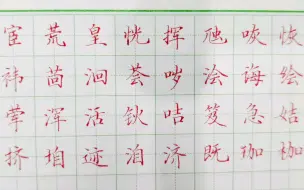 宦荒皇恍挥虺咴恢
袆茴洄荟哕浍诲绘
荤浑活钬咭笈急姞
挤垍迹洎济既珈枷